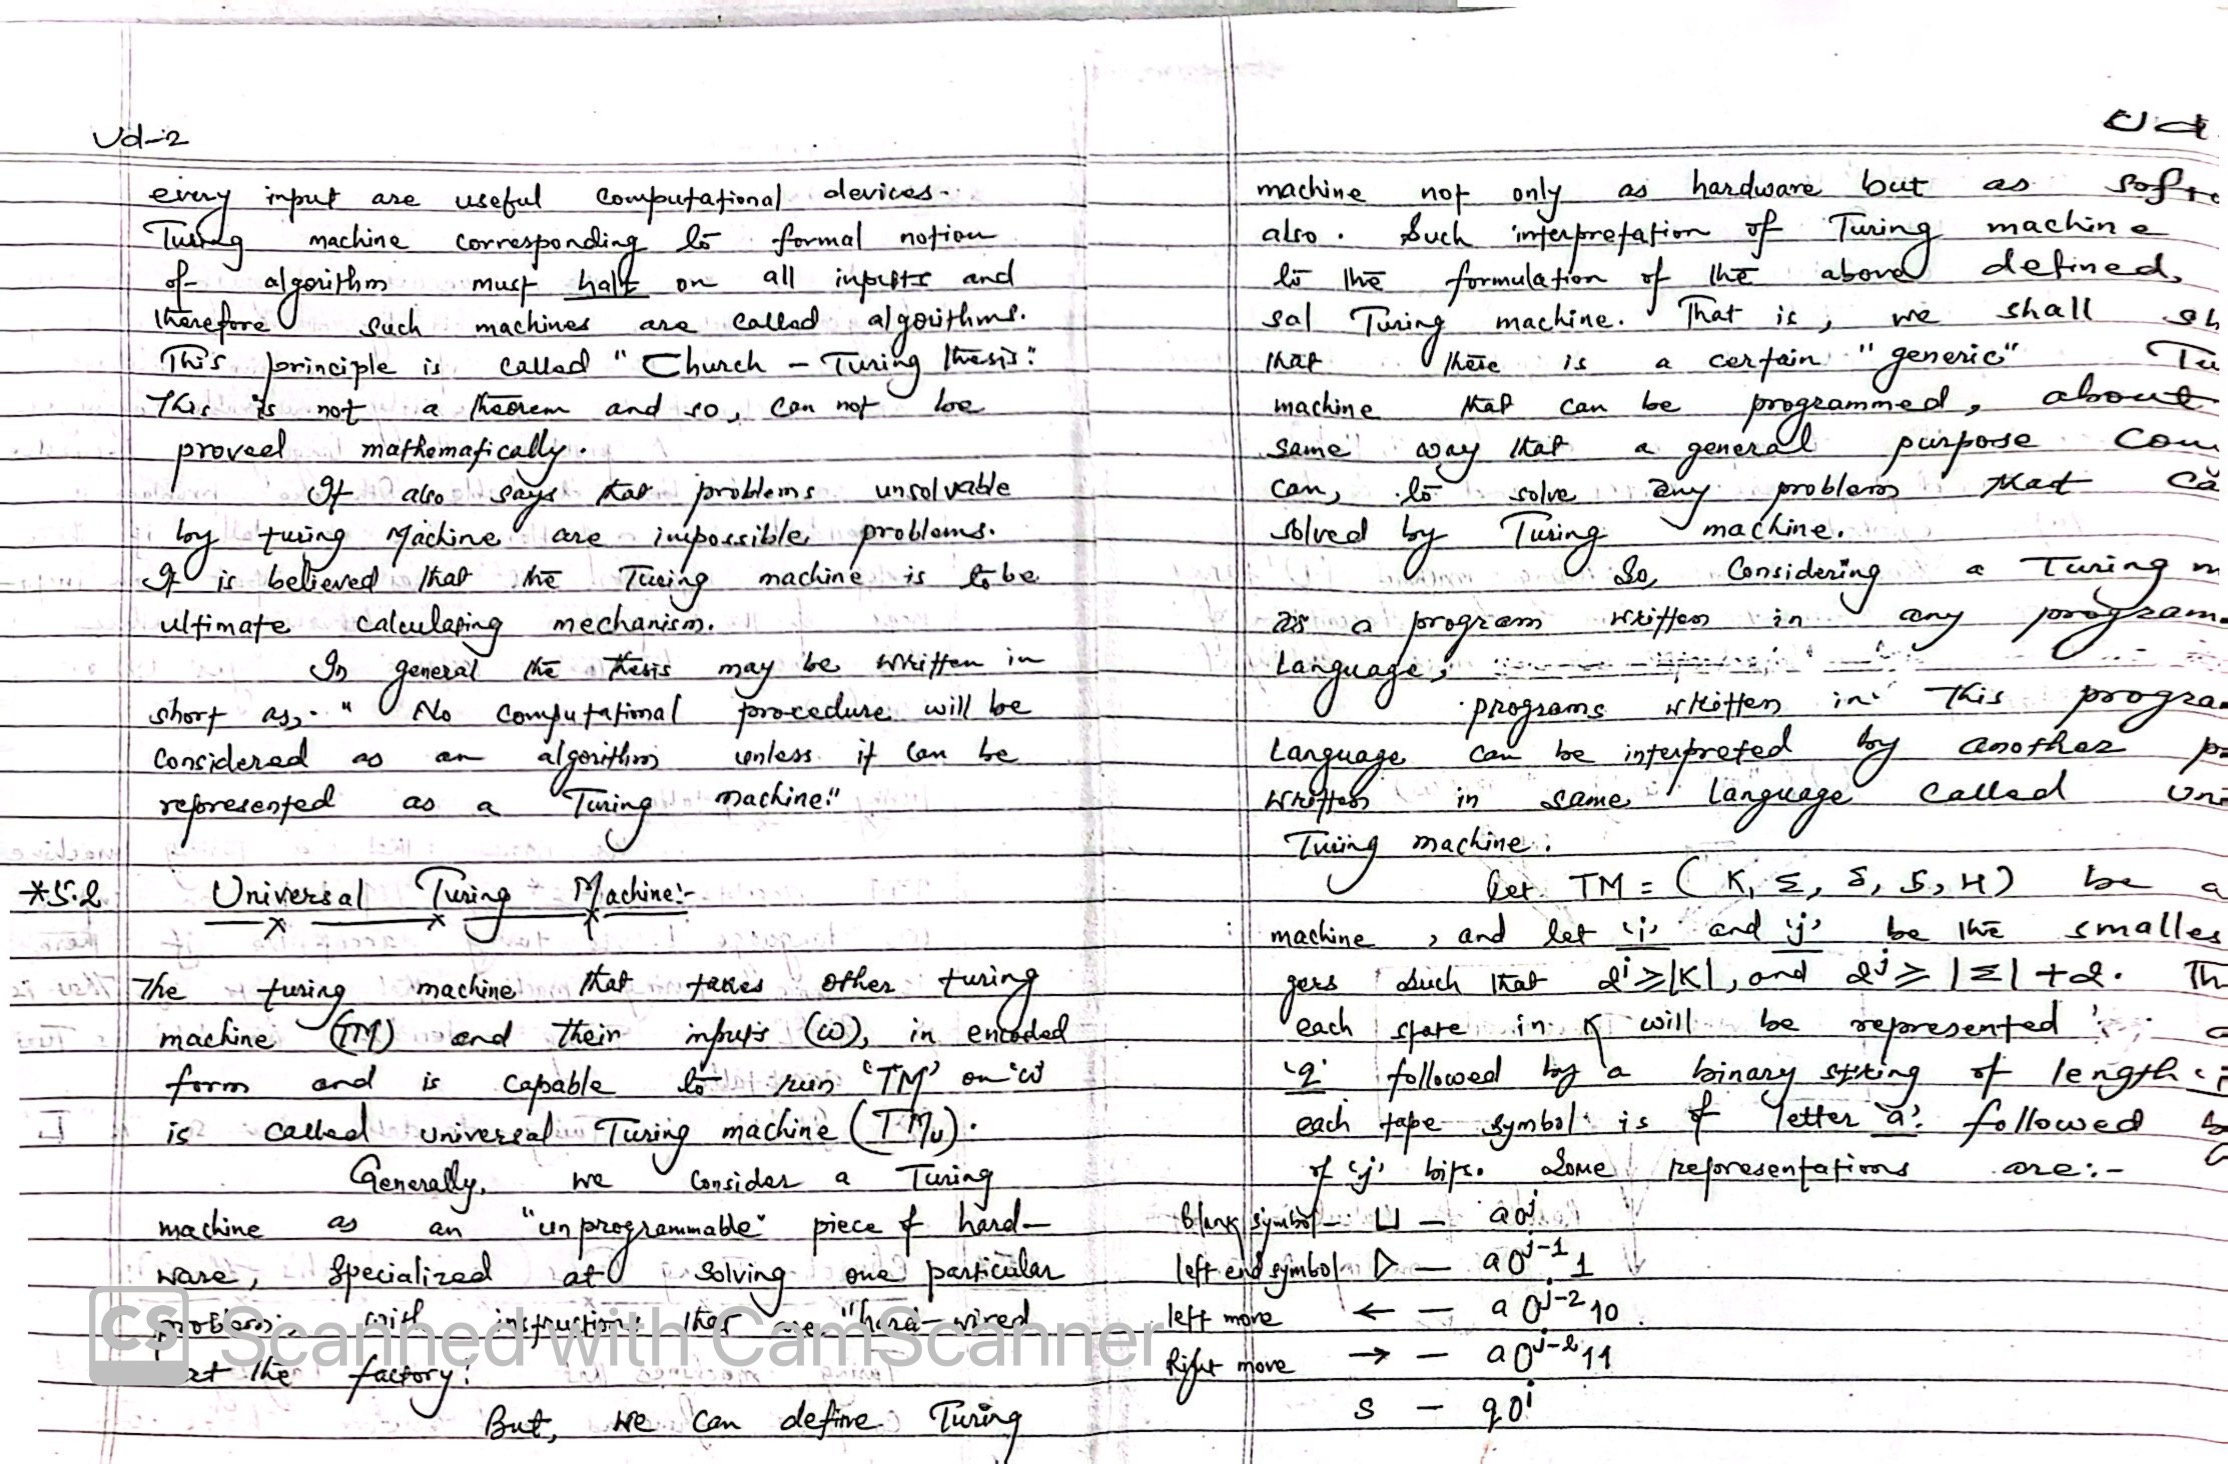 Ud-2
every input are useful computational devices.
Turing machine corresponding to formal notion
of algorithm must halt on all inputs and
therefore such machines are called algorithms.
This principle is called "Church - Turing thesis."
This is not a theorem and so, can not be
proved mathematically.
It also says that problems unsolvable
by turing Machine are impossible problems.
It is believed that the Turing machine is to be
ultimate calculating mechanism.
In general the thesis may be written in
short as,- " No computational procedure will be
considered as an algorithm unless it can be
represented as a Turing machine."
*5.2 Universal Turing Machine:-
The turing machine that takes other turing
machine (TM) and their inputs (ω), in encoded
form and is capable to run 'TM' on 'ω'
is called universal Turing machine (TMu).
Generally, we consider a Turing
machine as an "unprogrammable" piece of hard-
ware, specialized at solving one particular
problem, with instructions that are "hard-wired
at the factory!
But, we can define Turing
Ud
machine not only as hardware but as
also. Such interpretation of Turing machine
to the formulation of the above defined,
sal Turing machine. That is, we shall sh
that there is a certain "generic" Tu
machine that can be programmed, about
same way that a general purpose Com
can, to solve any problems that ca
solved by Turing machine.
So, Considering a Turing m
as a program written in any program
Language;
programs written in this progra
Language can be interpreted by another
written in same language called Uni
Turing machine.
let TM = (K, Σ, δ, S, H) be a
machine, and let 'i' and 'j' be the smalles
gers such that 2^i ≥ |K|, and 2^j ≥ |Σ| + 2. Th
each state in K will be represented
'q' followed by a binary string of length i
each tape symbol is of letter 'a' followed b
of 'j' bits. Some representations are:-
blank symbol - ⊔ - a0^j
left end symbol ▷ - a0^j-1 1
left move ← - a0^j-2 10
Right move → - a0^j-2 11
s - q0^i
CS Scanned with CamScanner